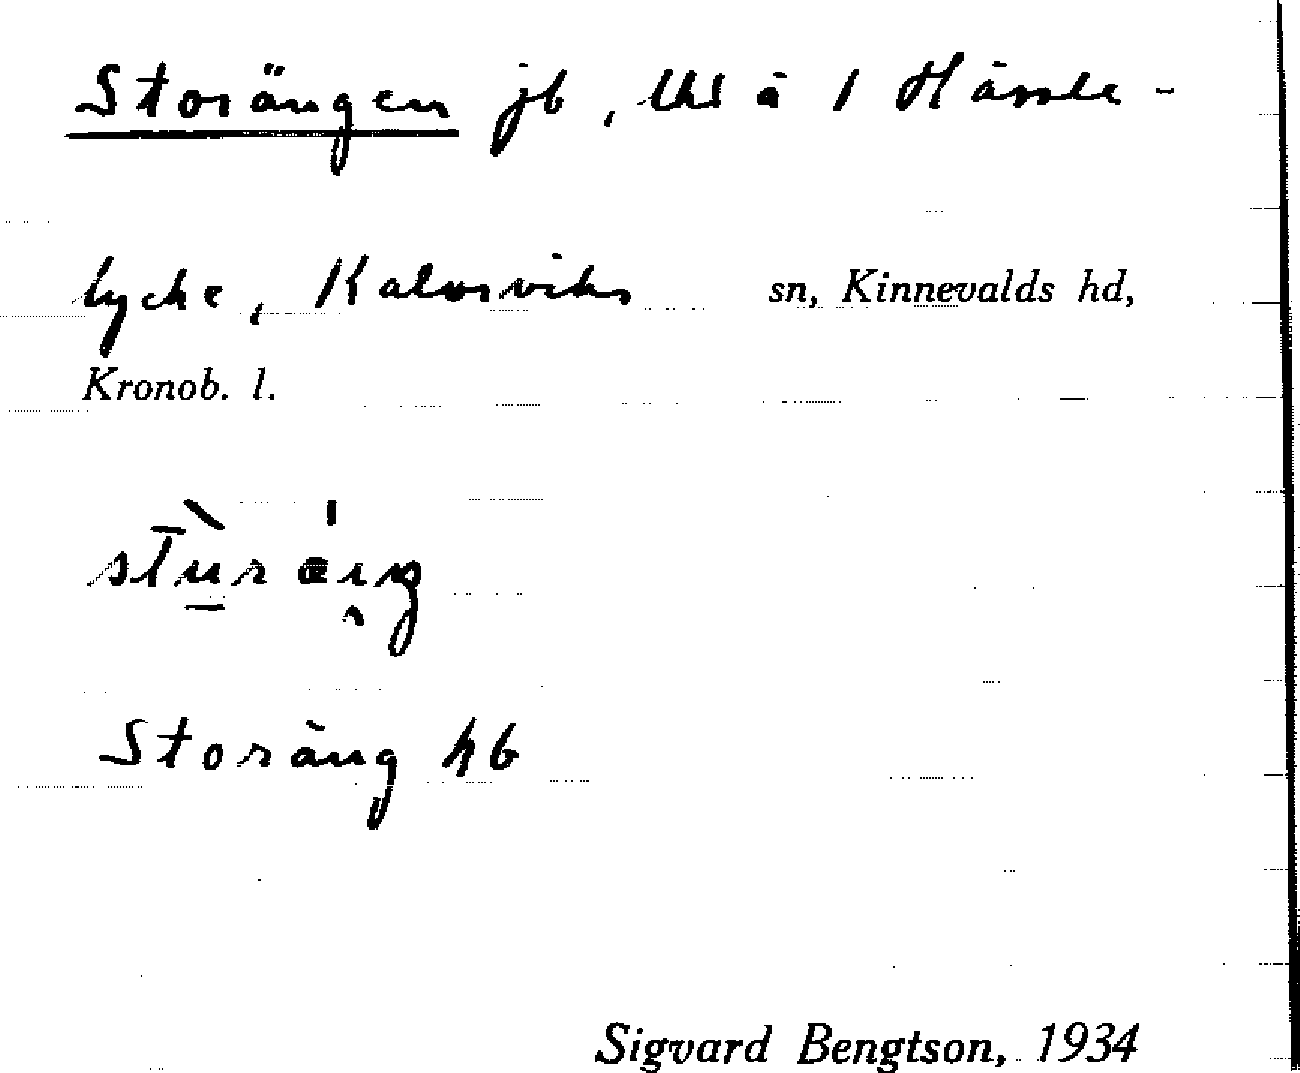 Storängen jb, lht å 1 Hässle-
lycke, Kalvsviks sn, Kinnevalds hd,
Kronob. l.
stùræ̀ng
Storäng hb
Sigvard Bengtson, 1934